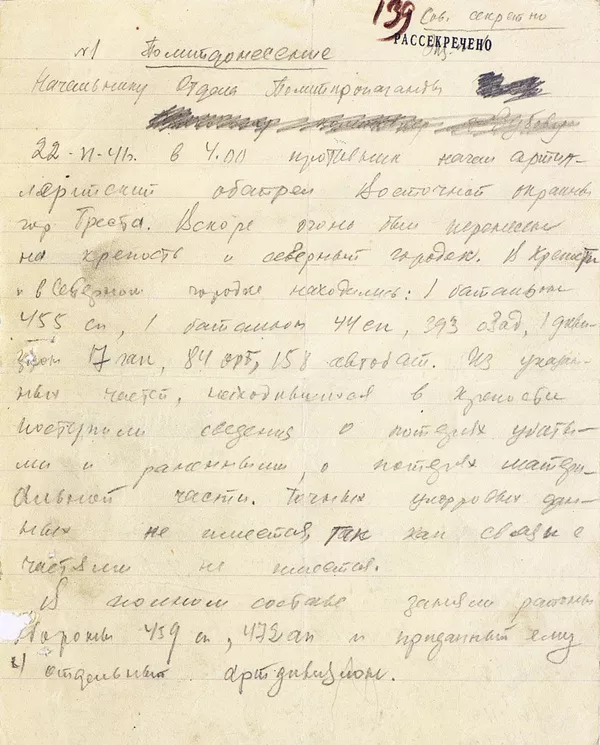 139
Сов. секретно
РАССЕКРЕЧЕНО
№1 Политдонесение
Начальнику Отдела Политпропаганды
22-VI-41г. в 4.00 противник начал артил-
лерийский обстрел Восточной окраины
гор Бреста. Вскоре огонь был перенесен
на крепость и северный городок. В Крепости
и в Северном городке находились: 1 батальон
455 сп, 1 батальон 44 сп, 393 озад, 1 диви-
зион 17 гап, 84 орб, 158 автобат. Из указан-
ных частей, находившихся в крепости
поступили сведения о потерях убиты-
ми и ранеными, о потерях матери-
альной части. Точных цифровых дан-
ных не имеется, так как связи с
частями не имеется.
В полном составе заняли районы
обороны 459 сп, 472 ап и приданный ему
отдельный артдивизион.